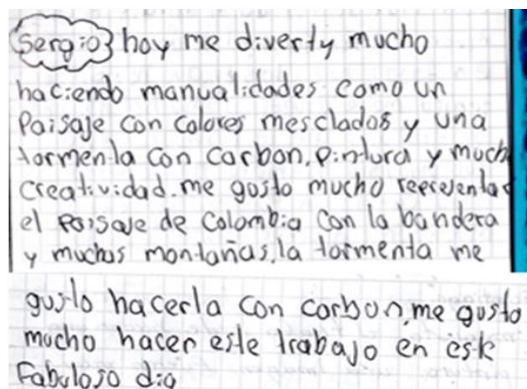 Sergio} hoy me diverty mucho
haciendo manualidades como un
Paisaje con colores mesclados y una
tormenta con carbon, pintura y mucha
creatividad. me gusto mucho representar
el Paisaje de Colombia con la bandera
y muchas montañas, la tormenta me
gusto hacerla con carbon, me gusto
mucho hacer este trabajo en este
Fabuloso dia